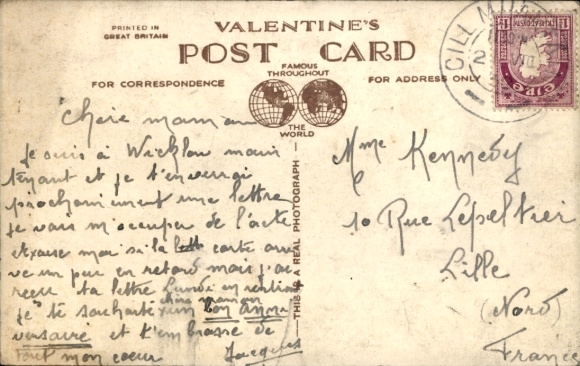 PRINTED IN
GREAT BRITAIN
VALENTINE'S
POST CARD
FAMOUS
THROUGHOUT
THE
WORLD
FOR CORRESPONDENCE
FOR ADDRESS ONLY
THIS IS A REAL PHOTOGRAPH
CILL M
EIRE
Chère maman
Je suis à Wicklow main
tenant et je t'enverrai
prochainement une lettre
je vais m'occuper de l'acte
excuse moi si la carte arri
ve un peu en retard mais j'ai
reçu ta lettre Lundi en
je te souhaite chère maman
un bon anni
versaire et t'embrasse de
tout mon coeur Jacques
Mme Kennedy
10 Rue Lepeltier
Lille
(Nord)
France